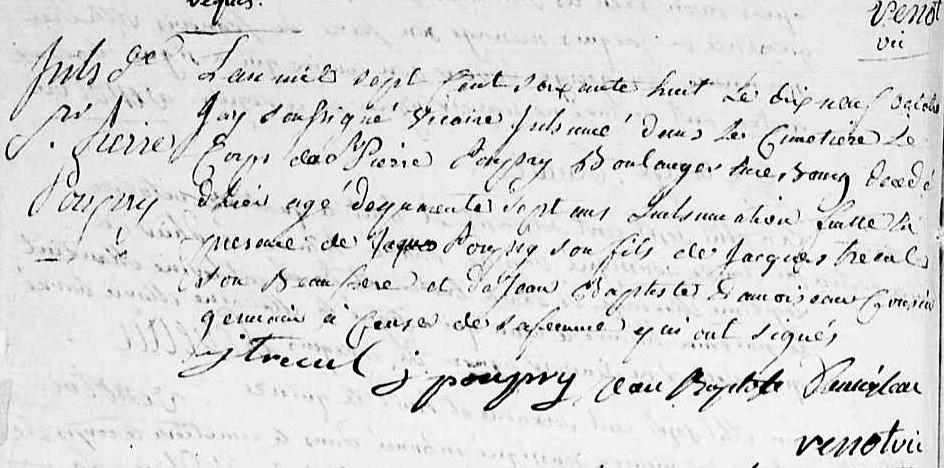 requis.
venot
vic
Inhs de
Sr. Pierre
Poupry
L'an mil sept cent soixante huit le dix neuf octobre
Jay soussigné vicaire Inhumé dans le Cimetiere le
Corps de Pierre Poupry Boulanger Bourg decedé
d'hier agé de quarante sept ans Linhumation faitte En
presence de Jaques Poupry son fils de Jacques treul
son Beau frere et de Jean Baptiste Damoiseau Cousin
germain a Cause de sa femme qui ont signés
j treul j poupry Jean Baptiste Damoiseau
venot vic